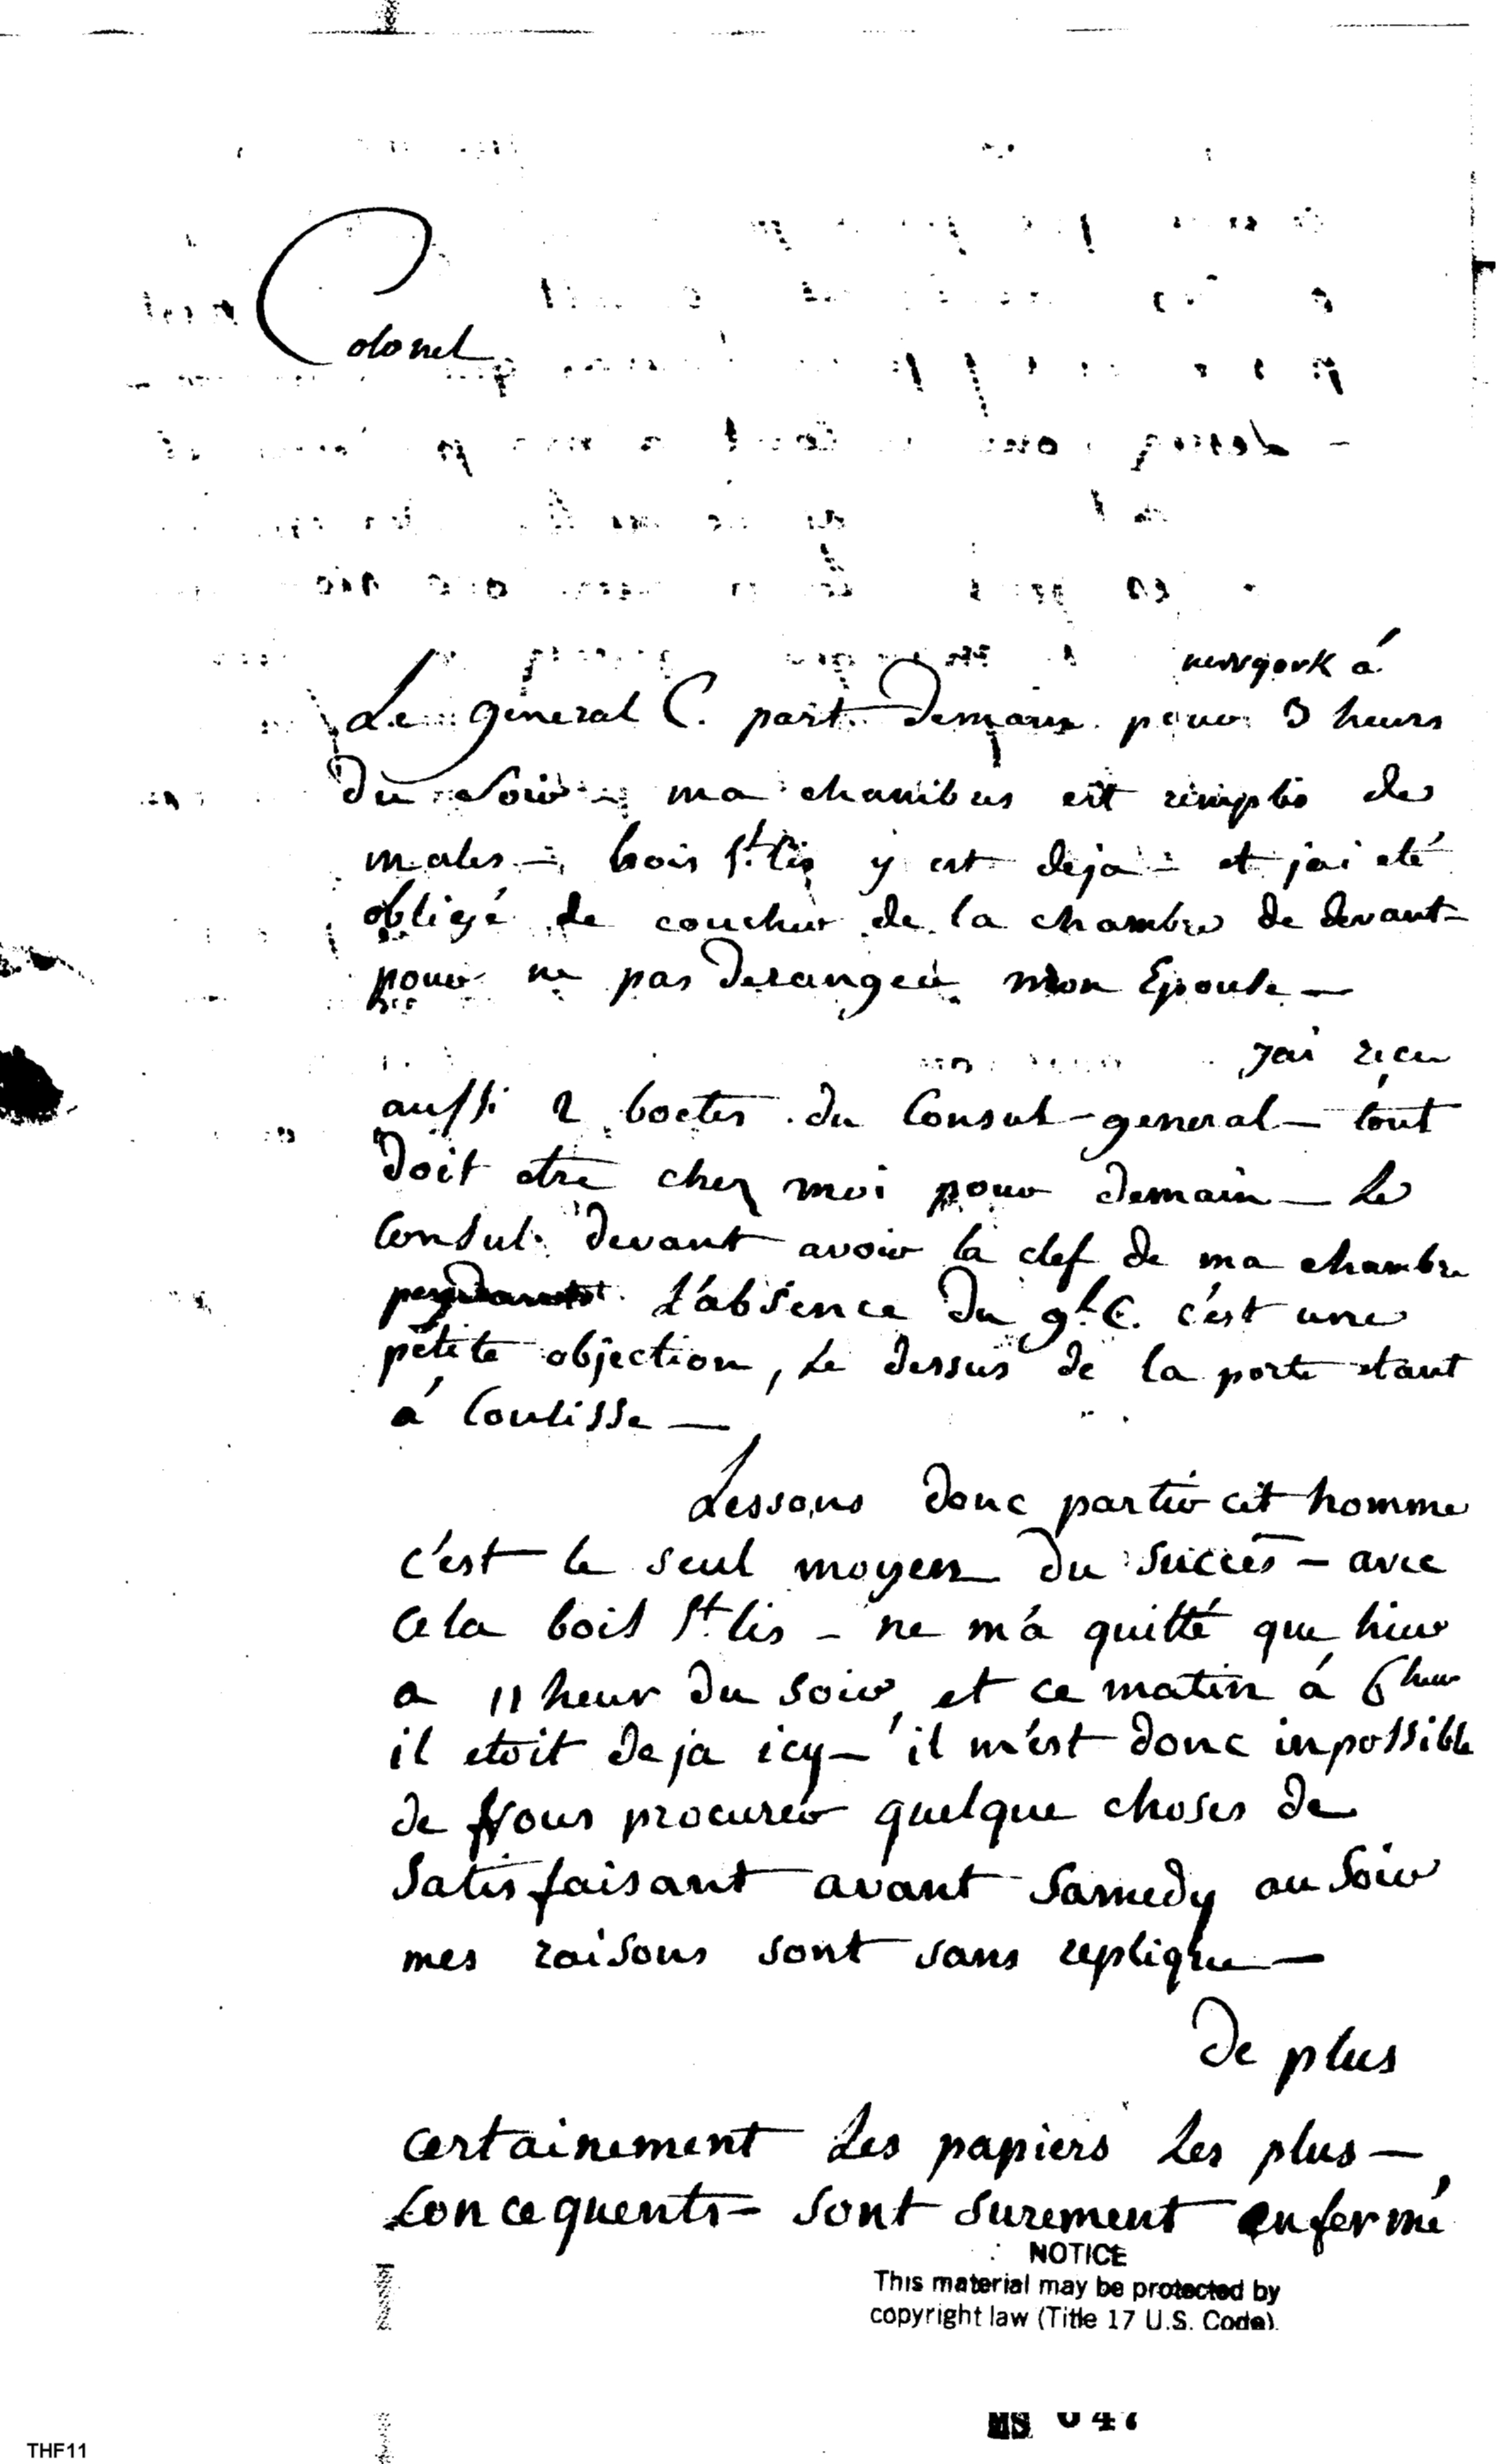 Colonel
newyork á
Le general C. part demain pour 3 heurs
du soir ma chambre est remplis de
males – bois St. lis y est deja – et jai eté
obligé de coucher de la chambre de devant
pour ne pas deranger mon Epouse —
Jai reçu
aussi 2 boetes du Consul-general – tout
doit etre chez moi pour demain – Le
Consul devant avoir la clef de ma chambre
pendant L'absence du gl. C. c'est une
petite objection, Le dessus de la porte etant
á Coulisse —
Lessons donc partir cet homme
c'est le seul moyen du succès – avec
cela bois St. lis – ne m'á quitté que hier
a 11 heur du soir, et ce matin á 6 heur
il etoit deja icy – il m'est donc inpossible
de Vous procurer quelque choses de
Satisfaisant avant Samedy au Soir
mes raisons sont sans replique —
De plus
certainement Les papiers Les plus —
Concequents – sont surement enfermé
NOTICE
This material may be protected by
copyright law (Title 17 U.S. Code).
MS 047
THF11